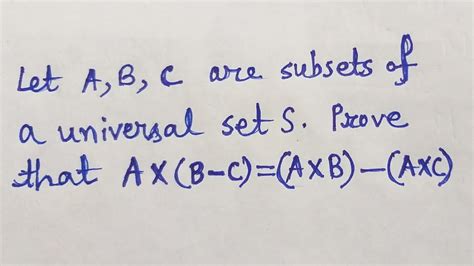 Let A, B, C are subsets of
a universal set S. Prove
that A×(B-C)=(A×B)-(A×C)